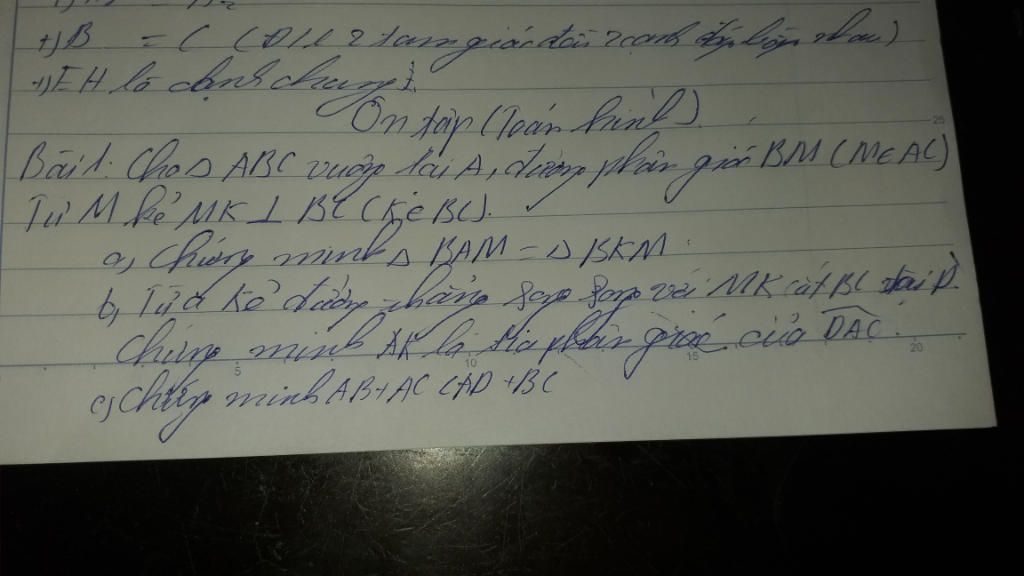 +) B = C (Đ/l 2 tam giác đều 2 cạnh đáy bằng nhau)
+) EH là cạnh chung
25
Ôn tập (Toán hình)
Bài 1: Cho Δ ABC vuông tại A, đường phân giác BM (M∈AC)
Từ M kẻ MK ⊥ BC (K∈BC).
a, Chứng minh Δ BAM = Δ BKM
b, Từ a kẻ đường thẳng song song với MK cắt BC tại D.
Chứng minh AK là tia phân giác của DAC.
5 10 15 20
c, Chứng minh AB+AC < AD+BC